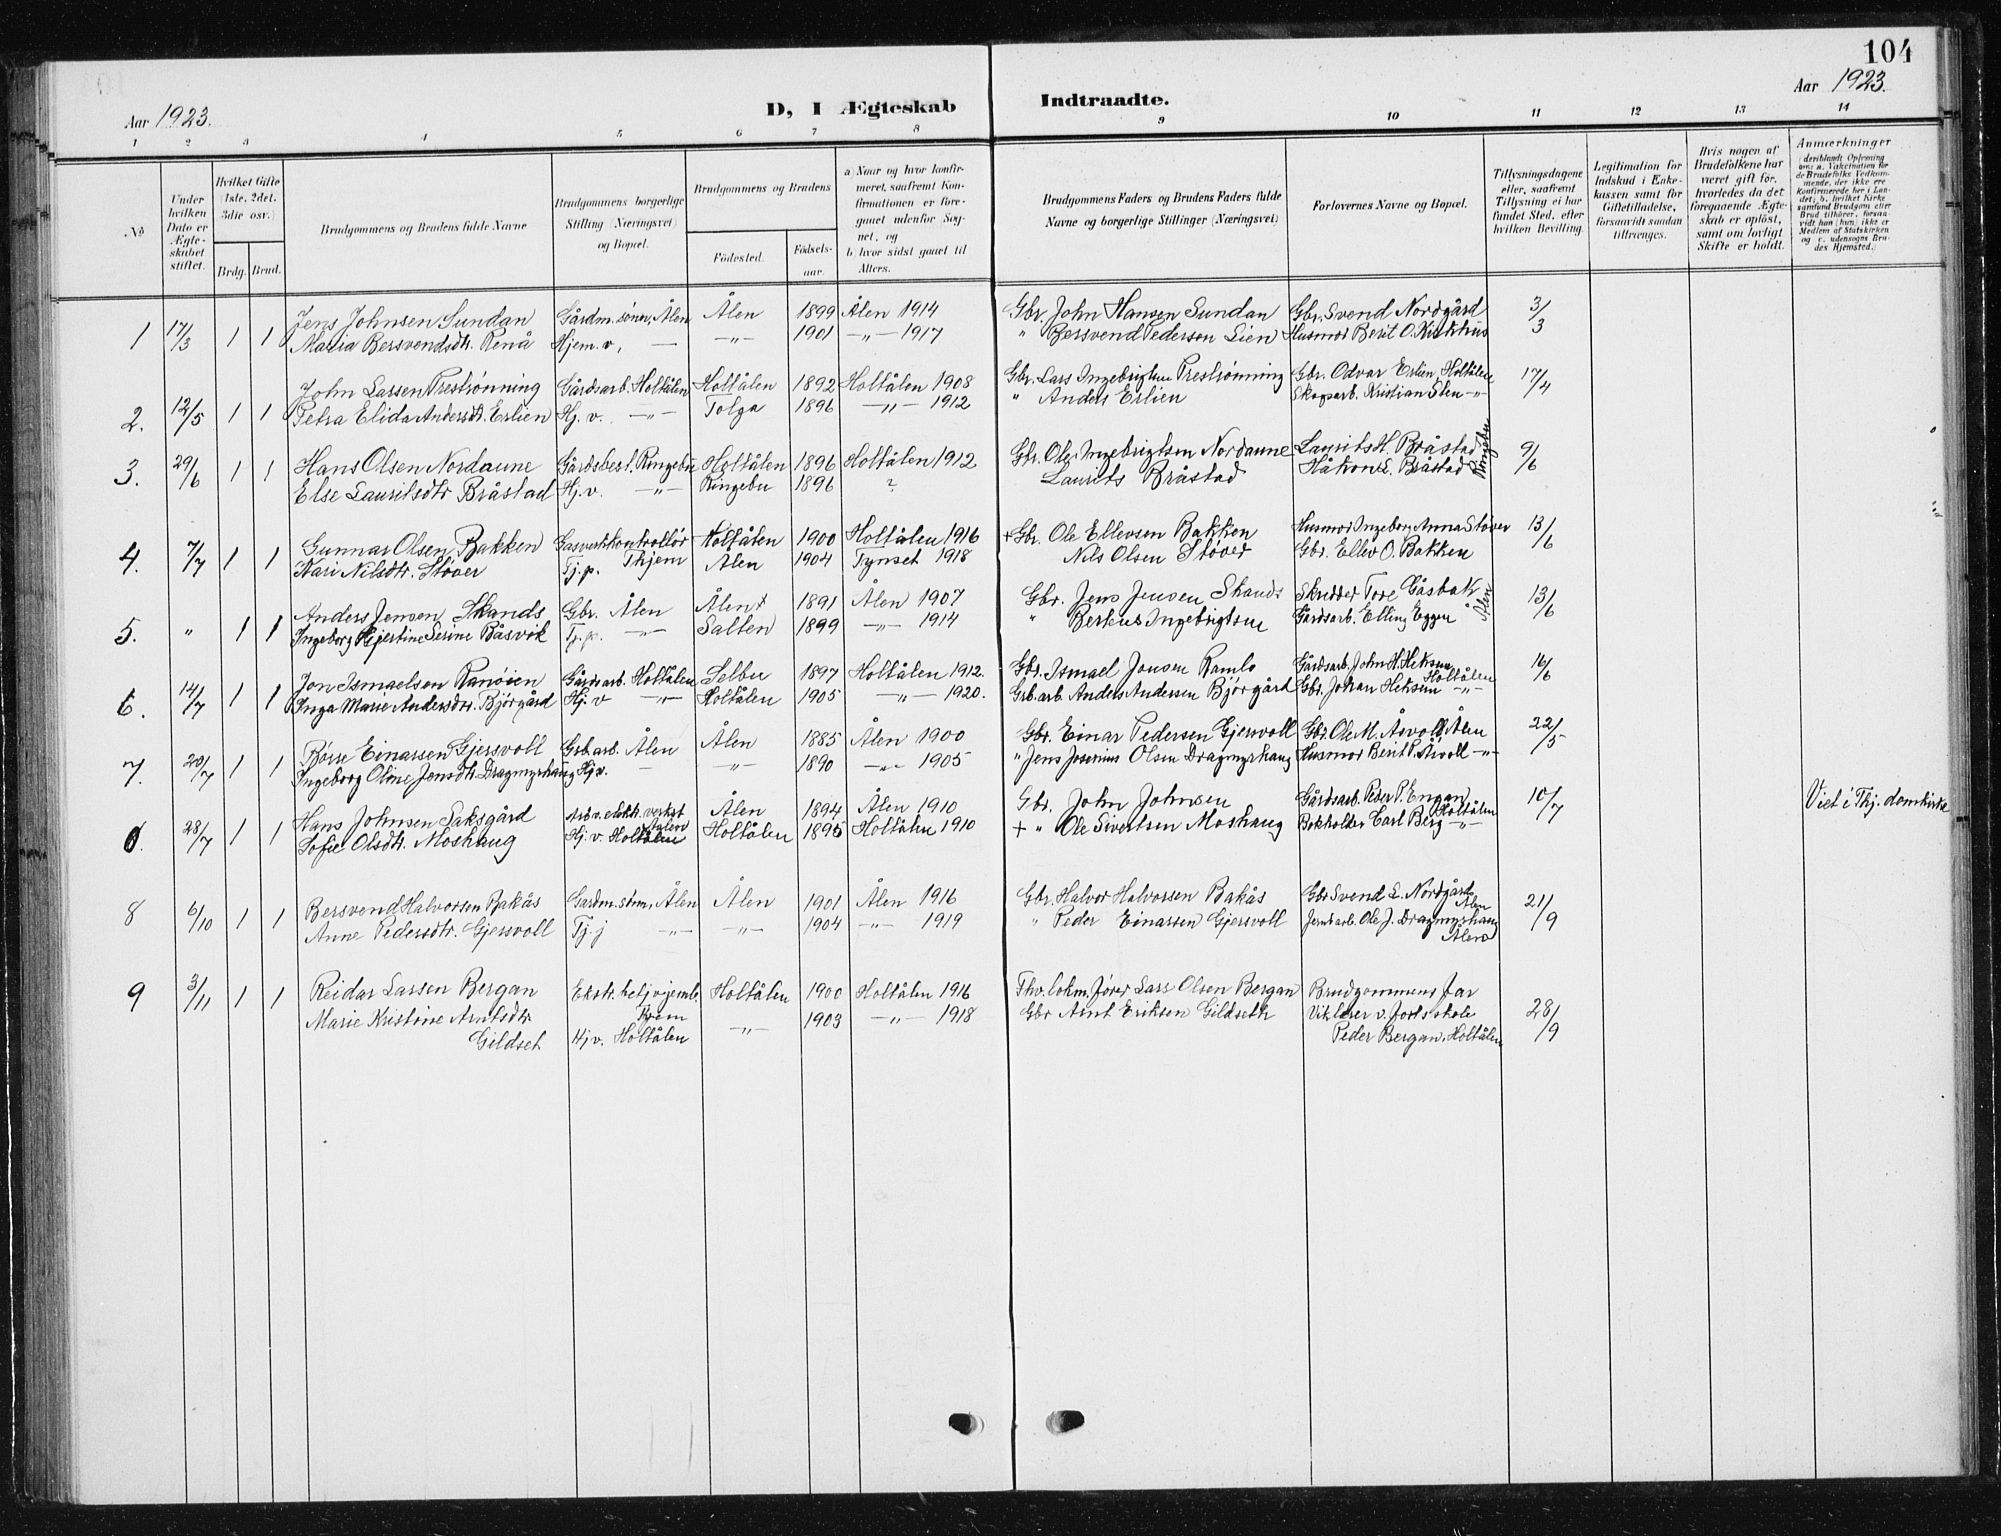 104
Aar 1923.
Aar 1923.
D, I Ægteskab Indtraadte.
1 2 3 4 5 6 7 8 9 10 11 12 13 14
No
Under hvilken Dato er Ægteskabet stiftet.
Hvilket Gifte (1ste, 2det, 3die osv.)
Brdg. Brud.
Brudgommens og Brudens fulde Navne
Brudgommens borgerlige Stilling (Næringsvei) og Bopæl.
Brudgommens og Brudens
Födested.
Födsels-aar.
a) Naar og hvor konfirmeret, saafremt Konfirmationen er foregaaet udenfor Sognet, og
b) hvor sidst gaaet til Alters.
Brudgommens Faders og Brudens Faders fulde Navne og borgerlige Stillinger (Næringsvei)
Forlovernes Navne og Bopæl.
Tillysningsdagene eller, saafremt Tillysning ei har fundet Sted, efter hvilken Bevilling.
Legitimation for Indskud i Enkekassen samt for Giftetilladelse, forsaavidt saadan tiltrænges.
Hvis nogen af Brudefolkene har været gift før, hvorledes da det foregaaende Ægteskab er opløst, samt om lovligt Skifte er holdt.
Anmærkninger
(deriblandt Oplysning om: a. Vaccination for de Brudefolks Vedkommende, der ikke ere konfirmerede her i Landet; b. hvilket Kirkesamfund Brudgom eller Brud tilhører, forsaavidt han (hun) ikke er Medlem af Statskirken og c. udensogns Brudes Hjemsted.)
1 17/3 1 1 Jens Johnsen Sundan Gårdm.sönn, Ålen Ålen 1899 Ålen 1914 Gbr. John Hansen Sundan Gbr. Svend Nordgård 3/3
Maria Bersvendsdtr. Renå Hjem.v, — -"- 1901 -"- 1917 " Bersvend Pedersen Lien Husmor Berit O. Kirkhus
2. 12/5 1 1 John Larsen Prestrønning Gårdsarb. Holtålen Holtålen 1892 Holtålen 1908 Gbr. Lars Ingebrigtsen Prestrønning Gbr. Odvar Erlien, Holtålen 17/4
Petra Elida Andersdtr. Erlien Hj. v. -"- Tolga 1896 -"- 1912 " Anders Erlien Skogsarb. Kristian Sten -"-
3. 29/6 1 1 Hans Olsen Nordaune Gårdsbest. Ringebu Holtålen 1896 Holtålen 1912 Gbr. Ole Ingebrigtsen Nordaune Laurits H. Bråstad 9/6
Else Lauritsdtr Bråstad Hj. v. -"- Ringebu 1896 ? Laurits Bråstad Håkon L. Bråstad Ringebu
4. 7/7 1 1 Gunnar Olsen Bakken Gasverkkontrollör Holtålen 1900 Holtålen 1916 + Gbr. Ole Ellevsen Bakken Husmor Ingeborg Anna Støver 13/6
Kari Nilsdtr. Støver Tj.p. Thjem Ålen 1904 Tynset 1918 Nils Olsen Støver Gbr. Ellev O. Bakken
5. " 1 1 Anders Jensen Skands Gbr. Ålen Ålen 1891 Ålen 1907 Gbr. Jens Jensen Skands Skredder Tore Gåsbak 13/6
Ingeborg Hjertine Serine Båsvik Tj.p. -"- Salten 1899 -"- 1914 " Berteus Ingebrigtsen Gårdsarb. Elling Eggen Ålen
6. 14/7 1 1 Jon Ismaelsen Ranöien Gårdsarb. Holtålen Selbu 1897 Holtålen 1912. Gbr. Ismael Jonsen Ramlo Gårdsarb. John H. Heksem Holtålen 16/6
Inga Marie Andersdtr. Bjørgård Hj. v -"- Holtålen 1905 -"- 1920. Grb.arb. Anders Andersen Bjørgård Gbr. Johan Heksem -"-
7. 20/7 1 1 Børre Einarsen Gjersvoll Grb.arb. Ålen Ålen 1885 Ålen 1900 Gbr. Einar Pedersen Gjersvoll Gbr. Ole M. Åsvoll Ålen 22/5
Ingeborg Oline Jensdtr. Dragmyrhaug Hj.v. — -"- 1890 -"- 1905 " Jens Josenius Olsen Dragmyrhaug Husmor Berit P. Åsvoll -"-
28/7 1 1 Hans Johnsen Saksgård Arb. v. elektr. verkst Ålen Ålen 1894 Ålen 1910 Gbr. John Johnsen Gårdsarb. Peder P. Engan Holtålen 10/7 Viet i Thj. domkirke
Sofie Olsdtr. Moshaug Hj. v. Holtålen Holtålen 1895 Holtålen 1910 + " Ole Sivertsen Moshaug Bokholder Carl Berg -"-
8 6/10 1 1 Bersvend Halvorsen Bakås Gardm. sönn, Ålen Ålen 1901 Ålen 1916 Gbr. Halvor Halvorsen Bakås Gbr Svend L. Nordgård Ålen 21/9
Anne Pedersdtr. Gjersvoll Tj. j -"- -"- 1904 -"- 1919 " Peder Einarsen Gjersvoll Jernb.arb. Ole J. Dragmyrhaug Ålen
9 3/11 1 1 Reidar Larsen Bergan Ekstr. betj v jernb. Holtålen 1900 Holtålen 1916 Thv. lokm. fører Lars Olsen Bergan Brudgommens far
Marie Kristine Arntsdtr -"- 1903 -"- 1918 Gbr Arnt Eriksen Gildseth Vik lærer v. forts skole 28/9
Gildset Hj v. Holtålen Peder Bergan, Holtålen